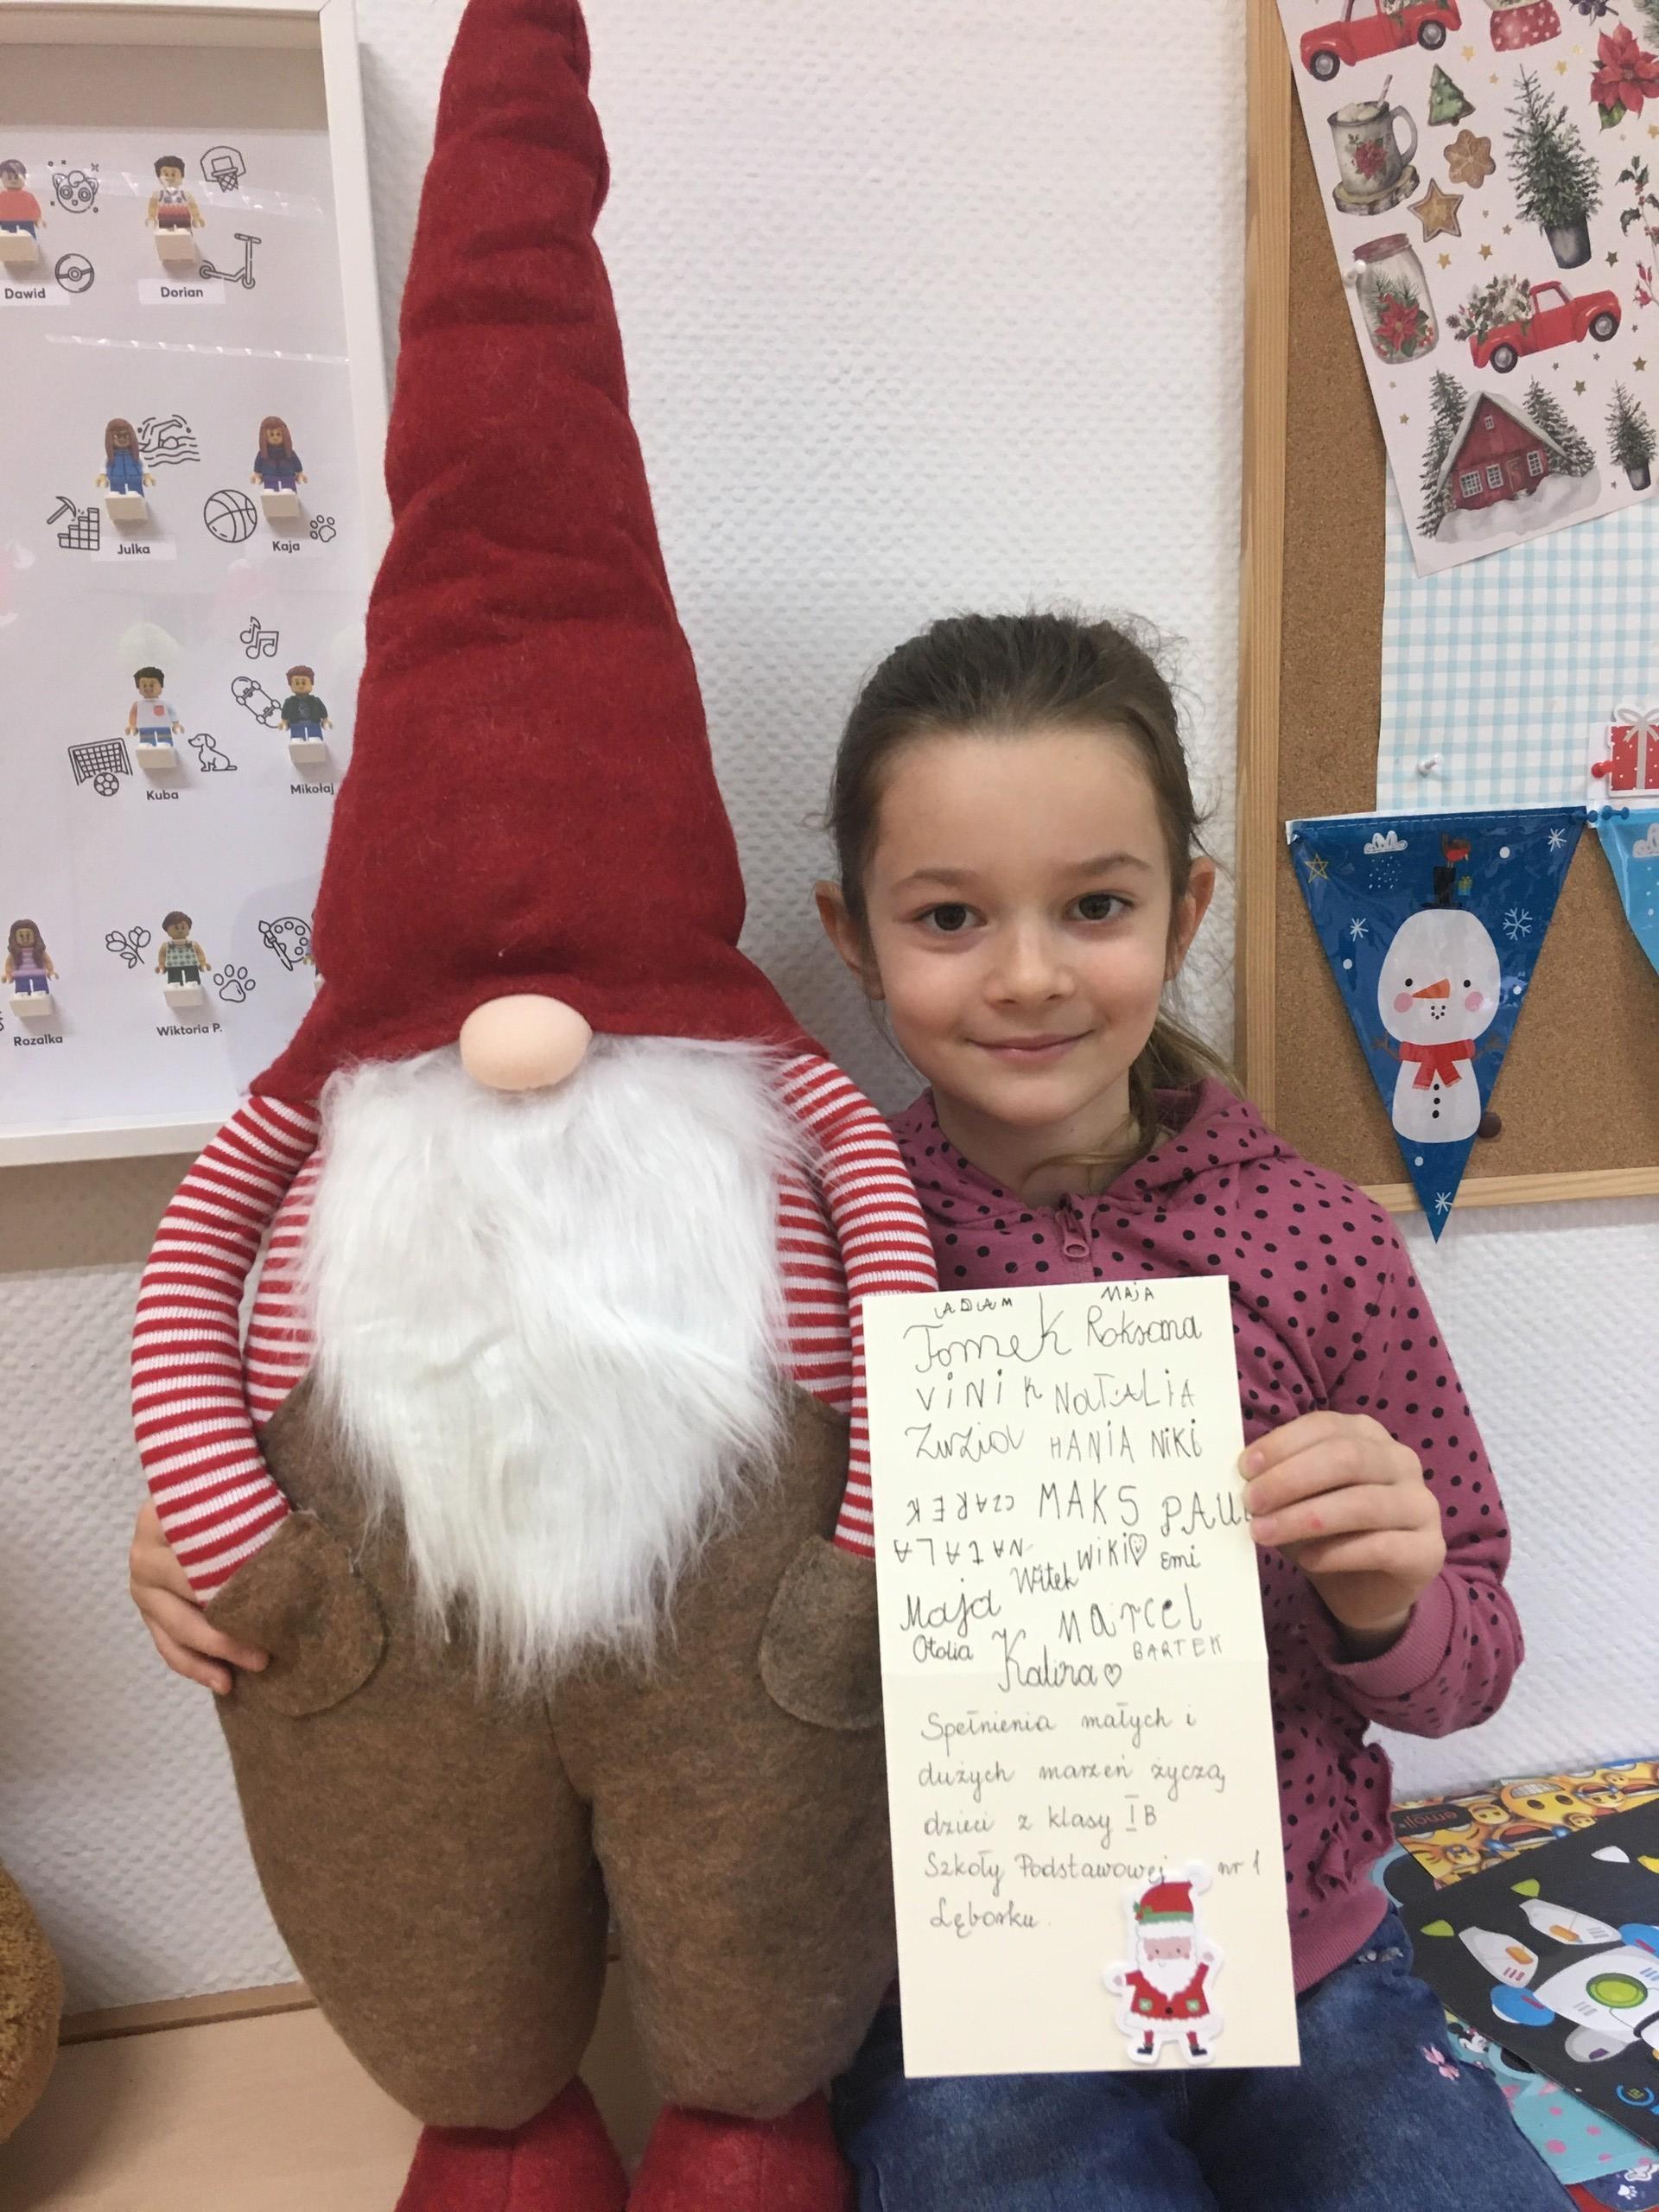 Dawid
Dorian
Julka
Kaja
Kuba
Mikołaj
Rozalka
Wiktoria P.
ADAM MAJA
Tomek Roksana
ViNi K NATALiA
Zuzia HANiA NiKi
CZAREK MAKS PAUL
NATALA WiKi Emi
Maja Witek
MARCEL
Otolia BARTEK
Kalina
Spełnienia małych i
dużych marzeń życzą
dzieci z klasy I B
Szkoły Podstawowej nr 1
Lęborku.
emoji